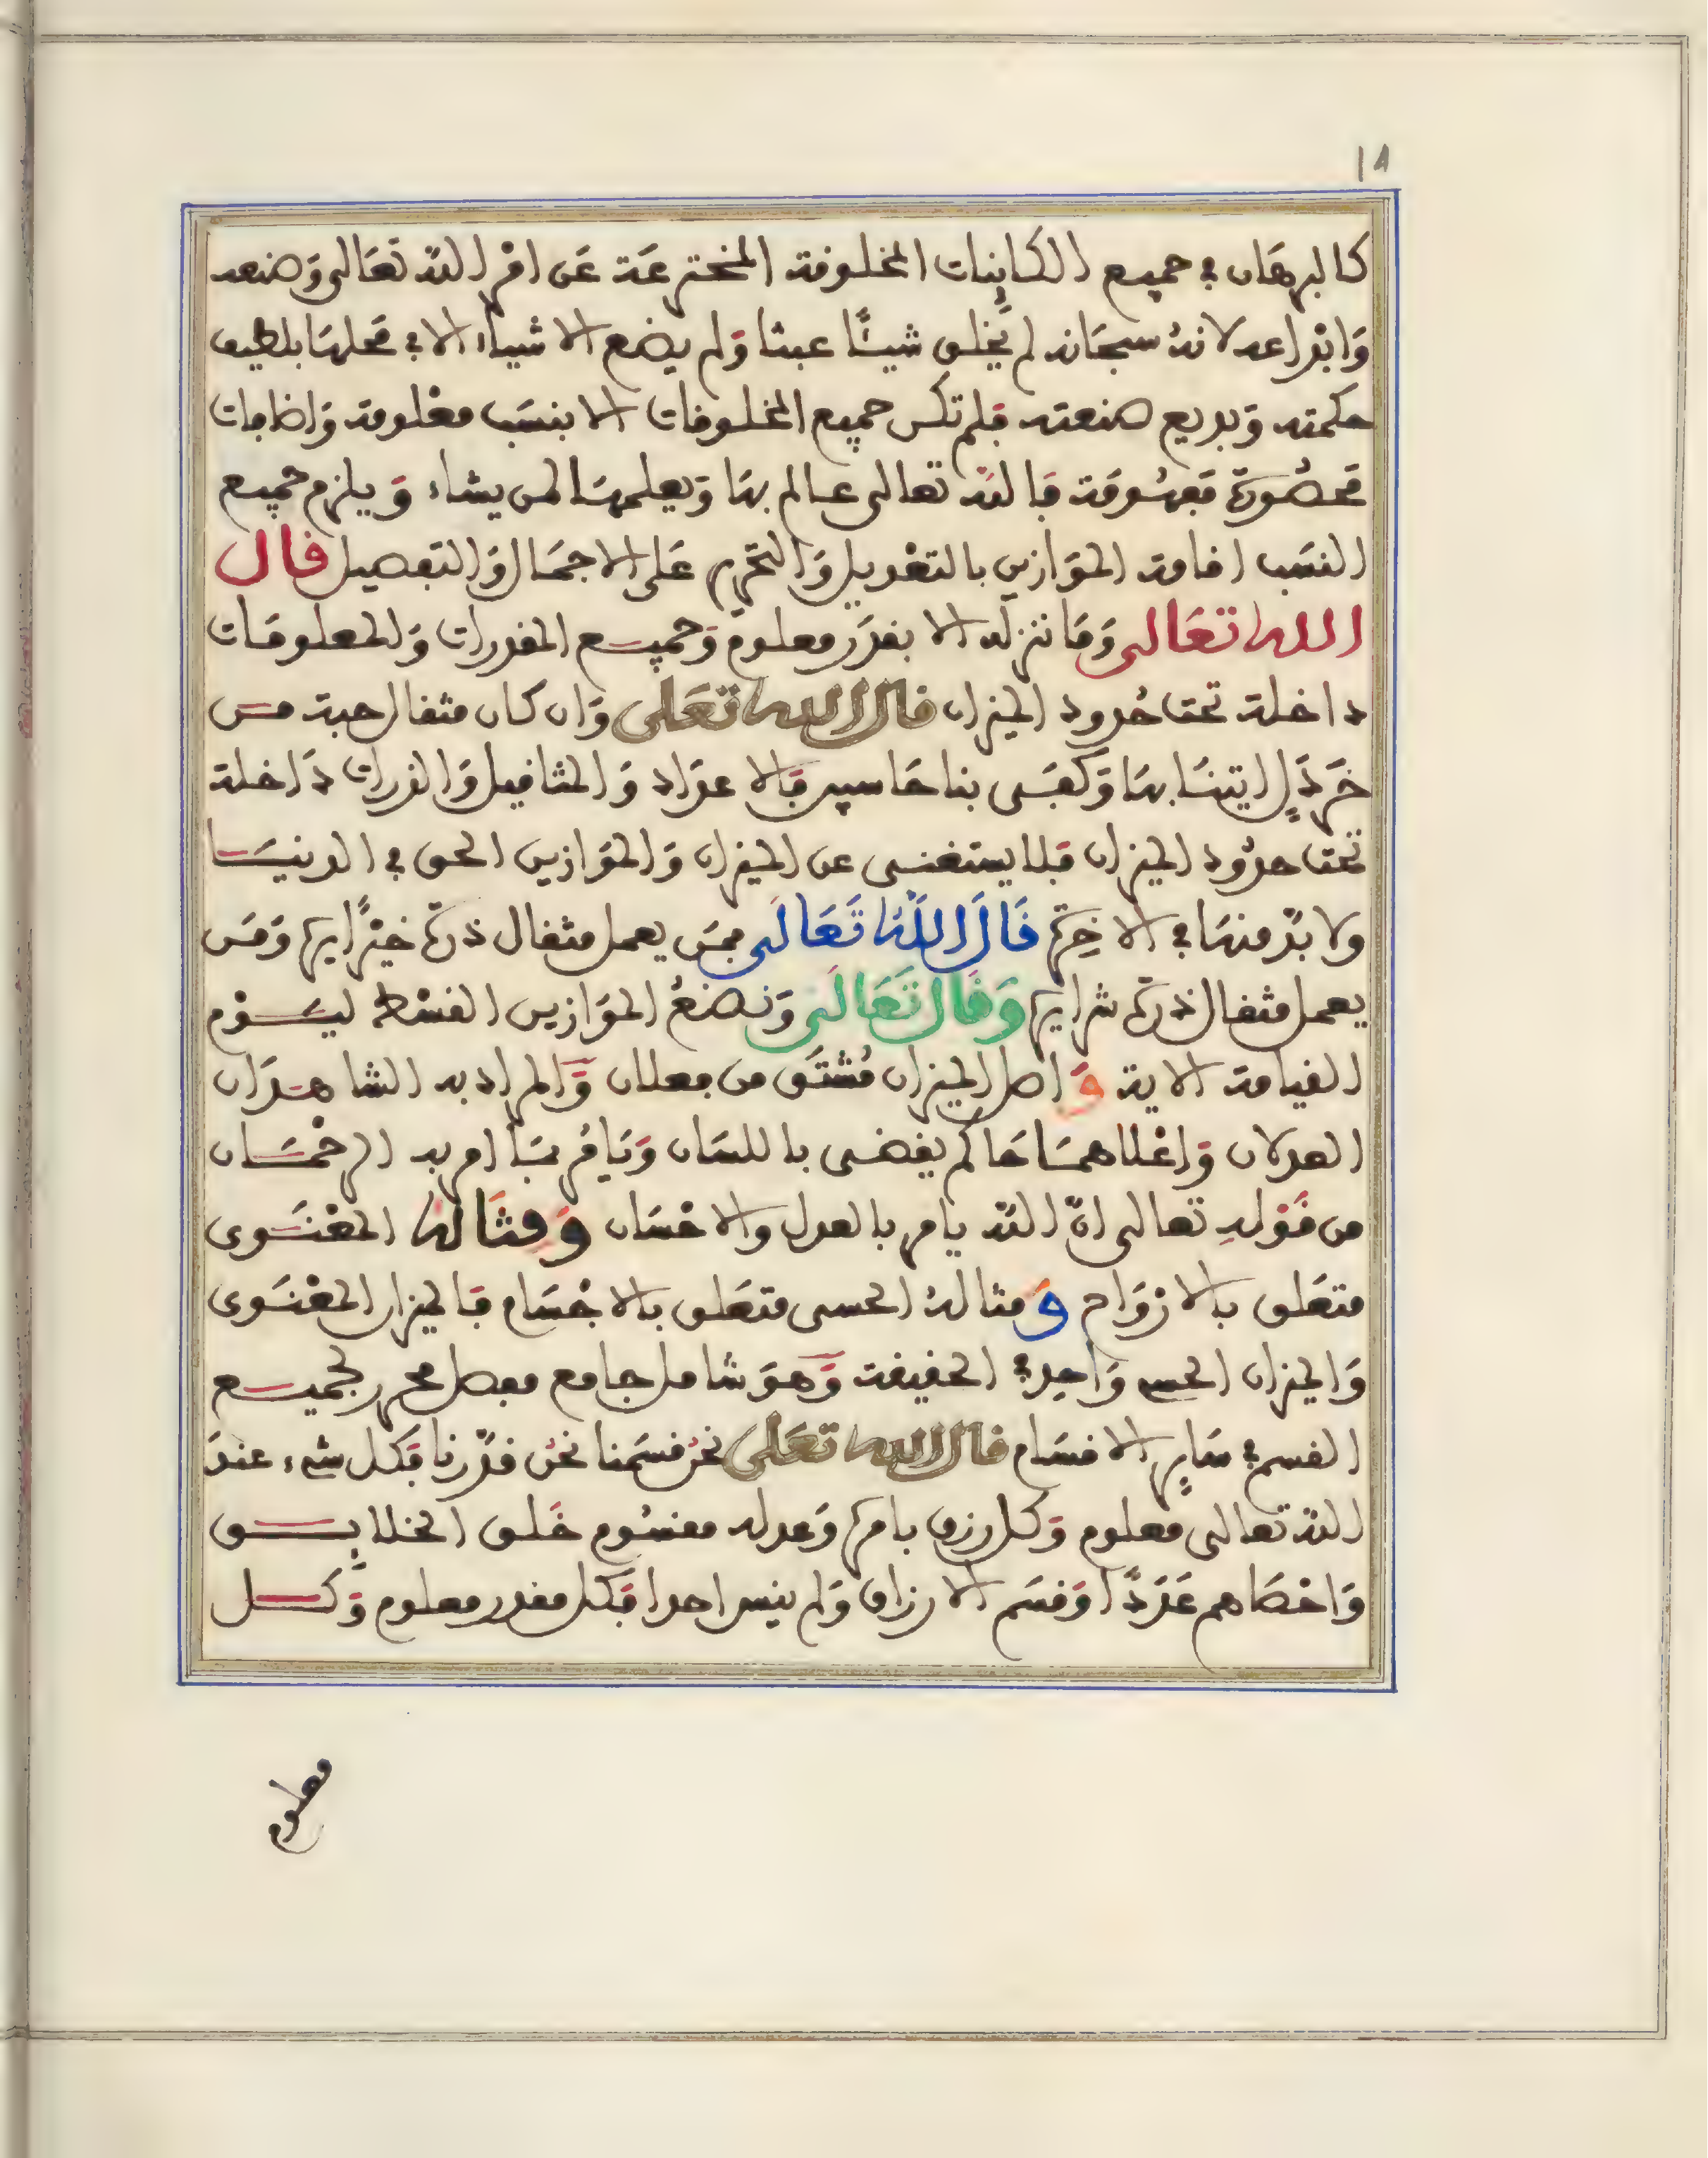 ١٨
كالبرهان في جميع الكاينات المخلوقة المخترعة عن امر الله تعالى وصنعه
وابداعه لانه سبحانه لم يخلق شيئا عبثا ولم يضع الاشياء الا في محلها بلطيف
حكمته وبديع صنعته فلم تكن جميع المخلوقات الا بنسب معلومة واضافات
محصورة مفهومة فالله تعالى عالم بها ويعلمها لمن يشاء ويلزم جميع
النسب اقامة الموازين بالتعديل والتحرير على الاجمال والتفصيل قال
الله تعالى وما ننزله الا بقدر معلوم وجميع المقدرات والمعلومات
داخلة تحت حدود الميزان قال الله تعلى وان كان مثقال حبة من
خردل اتينا بها وكفى بنا حاسبين فالاعداد والمثاقيل والذرات داخلة
تحت حدود الميزان فلا يستغنى عن الميزان والموازين الحق في الدنيا
ولا بد منها في الاخرة قال الله تعالى فمن يعمل مثقال ذرة خيرا يره ومن
يعمل مثقال ذرة شرا يره وقال تعالى ونضع الموازين القسط ليوم
القيامة الاية واصل الميزان مشتق من فعلان والمراد به الشاهدان
العدلان واعلاهما حاكم يقضى باللسان ويامر بما امر به الرحمان
من قوله تعالى ان الله يامر بالعدل والاحسان ومثاله المعنوى
متعلق بالارواح ومثاله الحسى متعلق بالاجسام فالميزان المعنوى
والميزان الحسي واحد في الحقيقة وهو شامل جامع مفصل محرر لجميع
القسم في ساير الاقسام قال الله تعلى نحن قسمنا نحن قدرنا فكل شيء عند
الله تعالى معلوم وكل رزق بامره وعدله مقسوم خلق الخلايق
واحصاهم عددا وقسم الارزاق ولم ينس احدا فكل مقدر معلوم وكل
معلوم